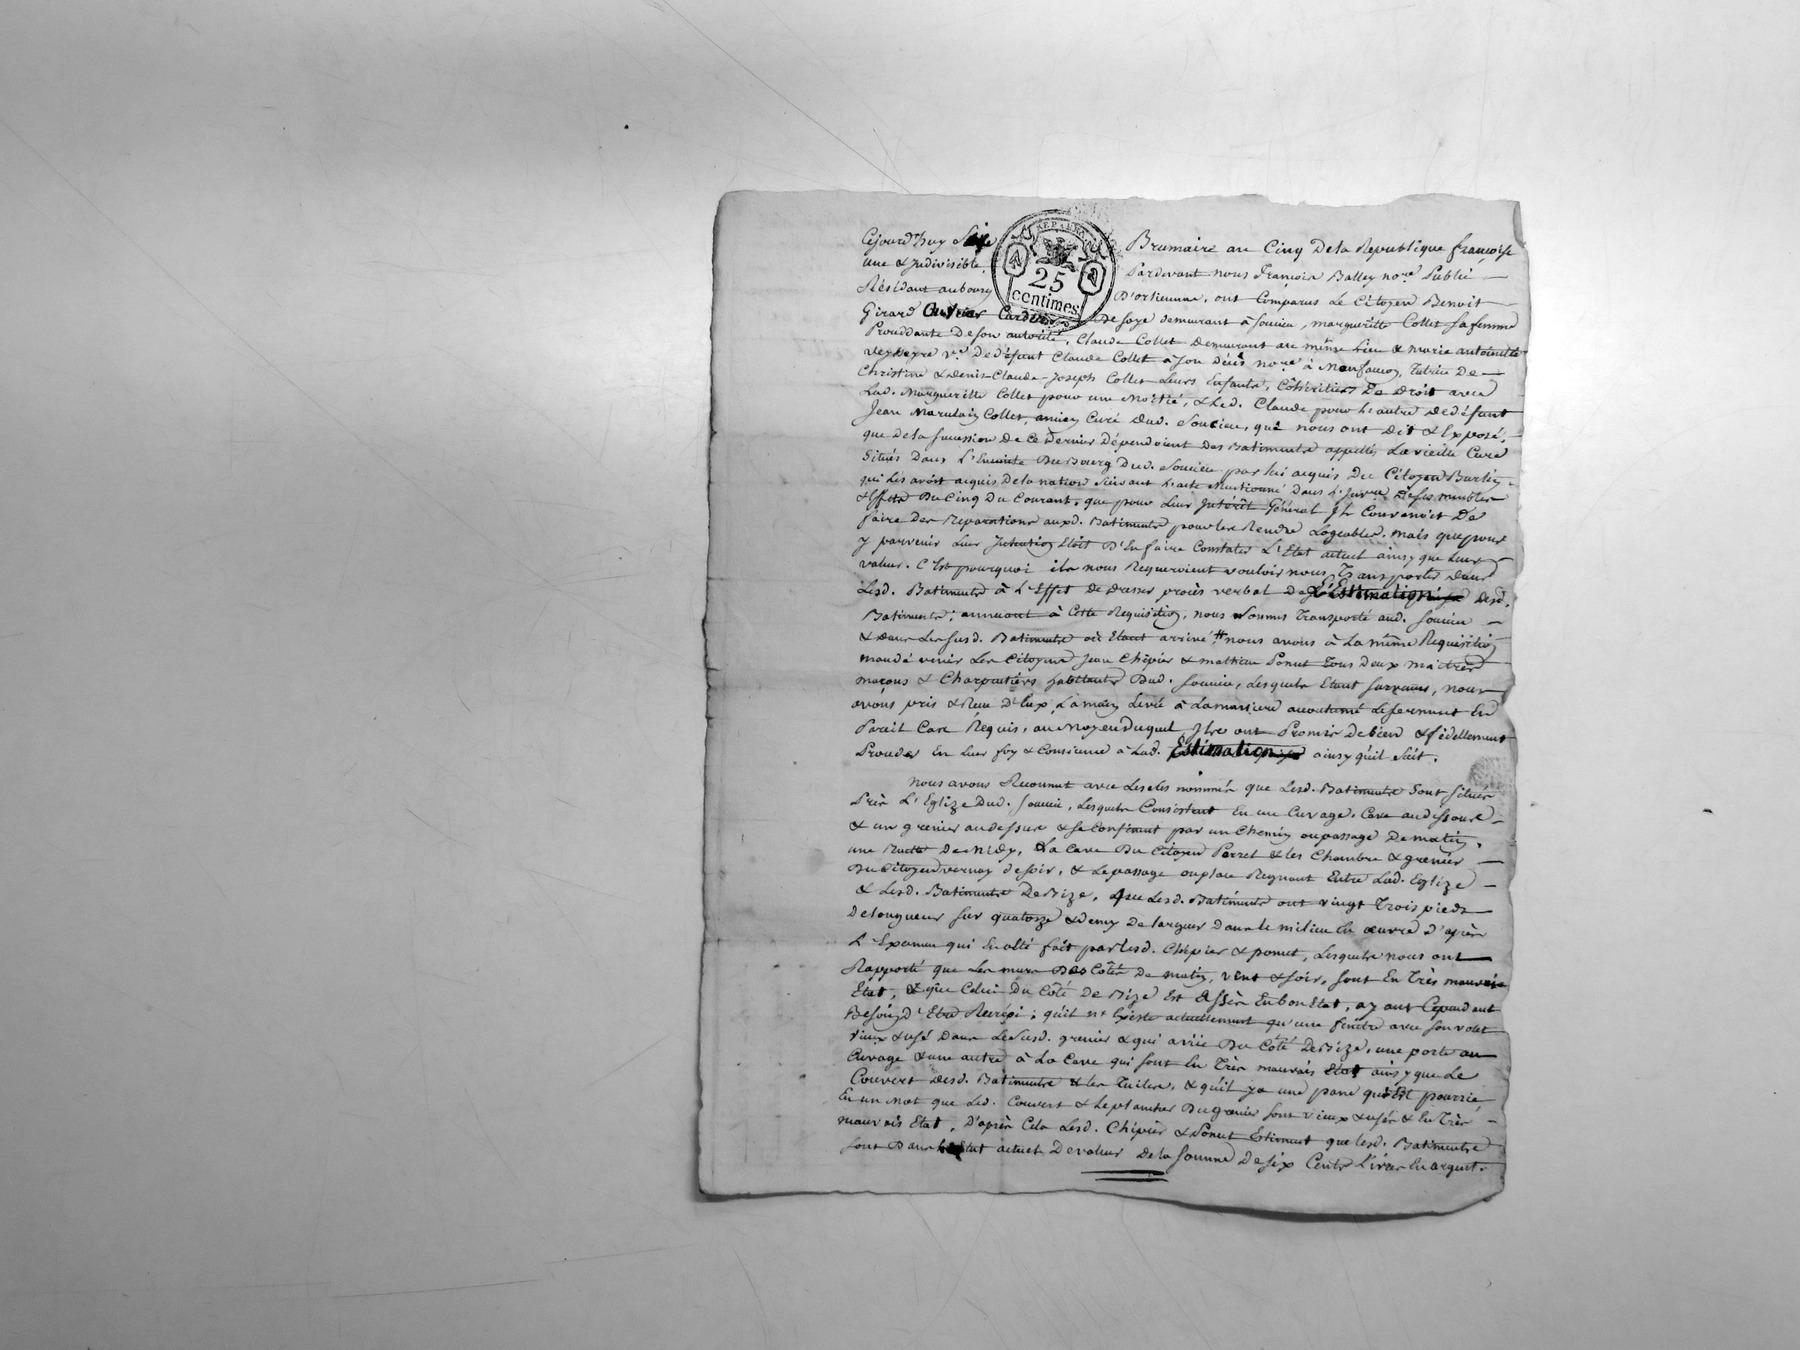 Cejourd'huy Seize Brumaire an Cinq de la Republique françoise
une & Indivisible, Pardevant nous françois Balley no.re Public
Résidant au bourg d'orlienne, ont Comparus Le Citoyen Benoit
REP. FRA.
25
centimes
Girard Ouvrier Cardeur de soye demeurant à Soucieu, margueritte Collet sa femme
Procédante de son autorité, Claude Collet demeurant au même Lieu & marie antoinette
veydeyre v.e de défunt Claude Collet à son décès no.re à Monfaucon, Tutrice de
Christine & Denis-Claude-Joseph Collet Leurs Enfants, Cohéritiers de Droit avec
Lad. Marguerite Collet pour une Moitié, & Led. Claude pour L'autre de défunt
Jean Collet, ancien Curé dud. Soucieu, qui nous ont dit & Exposé,
que de la succession de Ce dernier dépendoient des Batiments appellés La vieille Cure
Situés dans L'Enceinte du Bourg dud. Soucieu par lui acquis du Citoyen
qui Les avoit acquis de la nation suivant L'acte Mentionné dans L'Inv.re de ses meubles
& Effets du Cinq du Courant, que pour Leur Intérêt Général Il Convenoit de
faire des Reparations auxd. Batiments pour les Rendre Logeables. mais que pour
y parvenir Leur Intention Etoit d'En faire Constater L'Etat actuel ainsy que Leur
valeur. C'est pourquoi ils nous Requervient vouloir nous Transporter dans
Lesd. Batiments à L'Effet de dresser procès verbal de L'Estimation desd.
Batiments; annuant à Cette Requisition, nous Sommes Transporté aud. Soucieu
& dans Les susd. Batiments où Etant arrivé nous avons à La même Requisition
mandé venir Les Citoyens Jean Chipier & mathieu Ponut Tous deux maitres
maçons & Charpentiers habitants dud. Soucieu, Lesquels Etant survenus, nous
avons pris & Reçu d'Eux, La main Levée à La maniere accoutumé Le serment En
Pareil Cas Requis, au Moyen duquel Ils ont Promis de bien & fidellement
Procéder En Leur foy & Conscience à Lad. Estimation ainsy qu'il suit.
nous avons Reconnut avec Lesdits nommés que Lesd. Batiments sont situés
Près L'Eglize dud. Soucieu, Lesquels Consistent En un Cuvage, Cave au dessous
& un grenier au dessus & se Confinent par un Chemin ou passage de matin,
une Ruette de midy, La Cave du Citoyen Perret & les Chambre & grenier
du Citoyen vernay de soir, & Le passage ou place Regnant Entre Lad. Eglize
& Lesd. Batiments de Bize, que Lesd. Batiments ont vingt Trois pieds
de longueur sur quatorze & demy de largeur dans le milieu En œuvre d'après
L'Examen qui En a été fait par Lesd. Chipier & ponut, Lesquels nous ont
Rapporté que Les murs des Côtés de matin, vent & soir, sont En Très mauvais
Etat, & que Celui du Côté de Bize Est assés En bon Etat, ayant Cependant
Besoin d'Etre Recrépi; qu'il n'Existe actuellement qu'une fenêtre avec son volet
vieux & usé dans Le susd. grenier & qui du Côté de Bize, une porte au
Cuvage & une autre à La Cave qui sont En Très mauvais Etat ainsy que Le
Couvert desd. Batiments & les Tuiles, & qu'il y a une pane qui Est pourrie
En un mot que Led. Couvert & Le plancher du grenier sont vieux & usés & En Très
mauvais Etat, d'après Cela Lesd. Chipier & Ponut Estiment que lesd. Batiments
sont dans L'Etat actuel de valeur de la somme de six Cents Livres En argent.